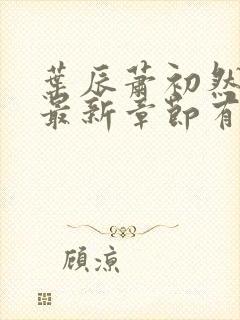 葉辰蕭初然
最新章節有
顧涼